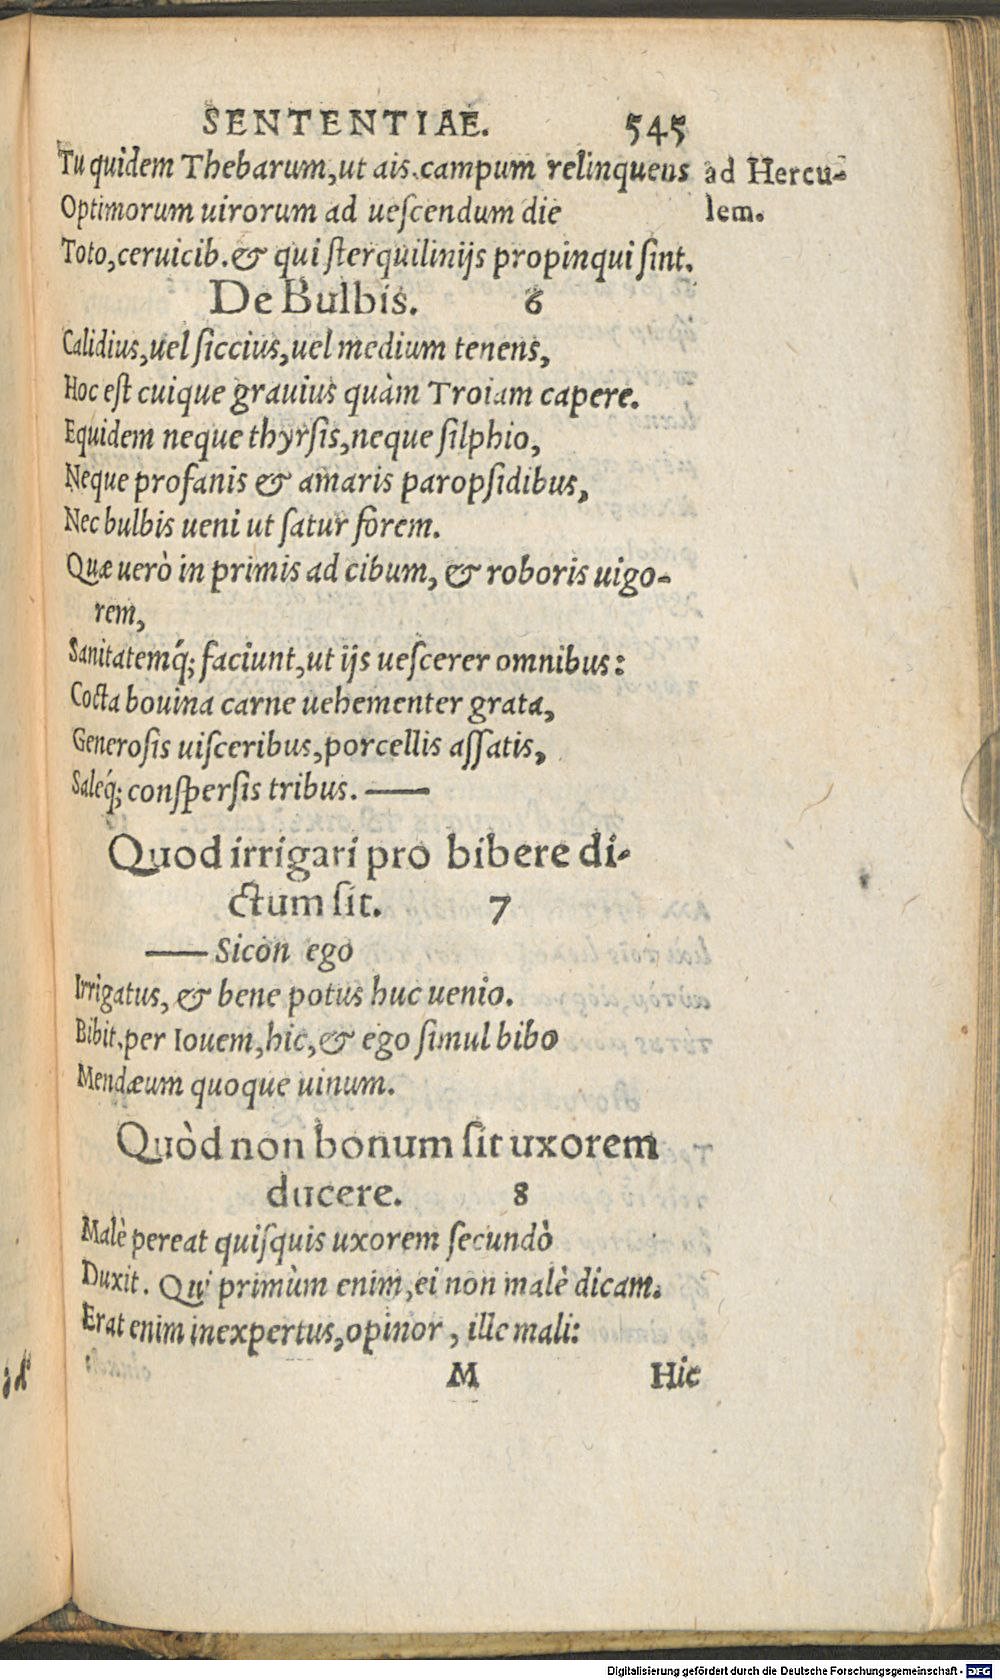 SENTENTIAE. 545
Tu quidem Thebarum, ut ais, campum relinquens ad Hercu-
Optimorum uirorum ad uescendum die lem.
Toto, ceruicib. & qui sterquilinijs propinqui sint.
De Bulbis. 6
Calidius, uel siccius, uel medium tenens,
Hoc est cuique grauius quàm Troiam capere.
Equidem neque thyrsis, neque silphio,
Neque profanis & amaris paropsidibus,
Nec bulbis ueni ut satur forem.
Quæ uerò in primis ad cibum, & roboris uigo-
rem,
Sanitatemq́; faciunt, ut ijs uescerer omnibus:
Cocta bouina carne uehementer grata,
Generosis uisceribus, porcellis assatis,
Saleq́; conspersis tribus. ——
Quod irrigari pro bibere di-
ctum sit. 7
—— Sicon ego
Irrigatus, & bene potus huc uenio.
Bibit, per Iouem, hic, & ego simul bibo
Mendæum quoque uinum.
Quòd non bonum sit uxorem
ducere. 8
Malè pereat quisquis uxorem secundò
Duxit. Qui primùm enim, ei non malè dicam.
Erat enim inexpertus, opinor, ille mali:
M Hic
Digitalisierung gefördert durch die Deutsche Forschungsgemeinschaft - DFG